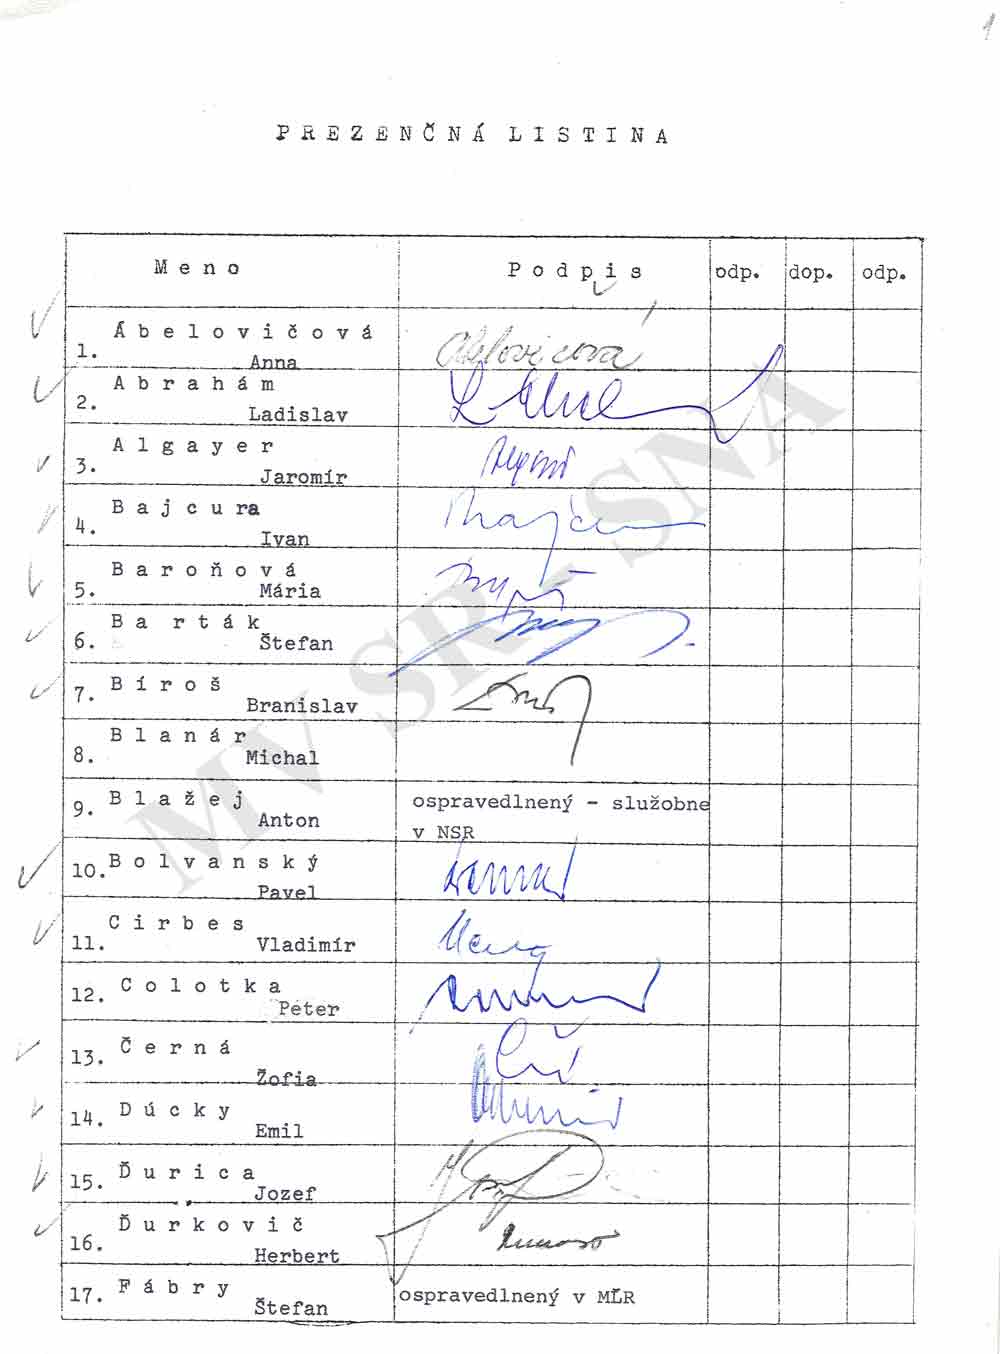 1
PREZENČNÁ LISTINA
Meno Podpis odp. dop. odp.
1. Ábelovičová
Anna
2. Abrahám
Ladislav
3. Algayer
Jaromír
4. Bajcura
Ivan
5. Baroňová
Mária
6. Ba rták
Štefan
7. Bíroš
Branislav
8. Blanár
Michal
9. Blažej ospravedlnený - služobne
Anton v NSR
10. Bolvanský
Pavel
11. Cirbes
Vladimír
12. Colotka
Peter
13. Černá
Žofia
14. Dúcky
Emil
15. Ďurica
Jozef
16. Ďurkovič
Herbert
17. Fábry ospravedlnený v MĽR
Štefan
MV SR - SNA